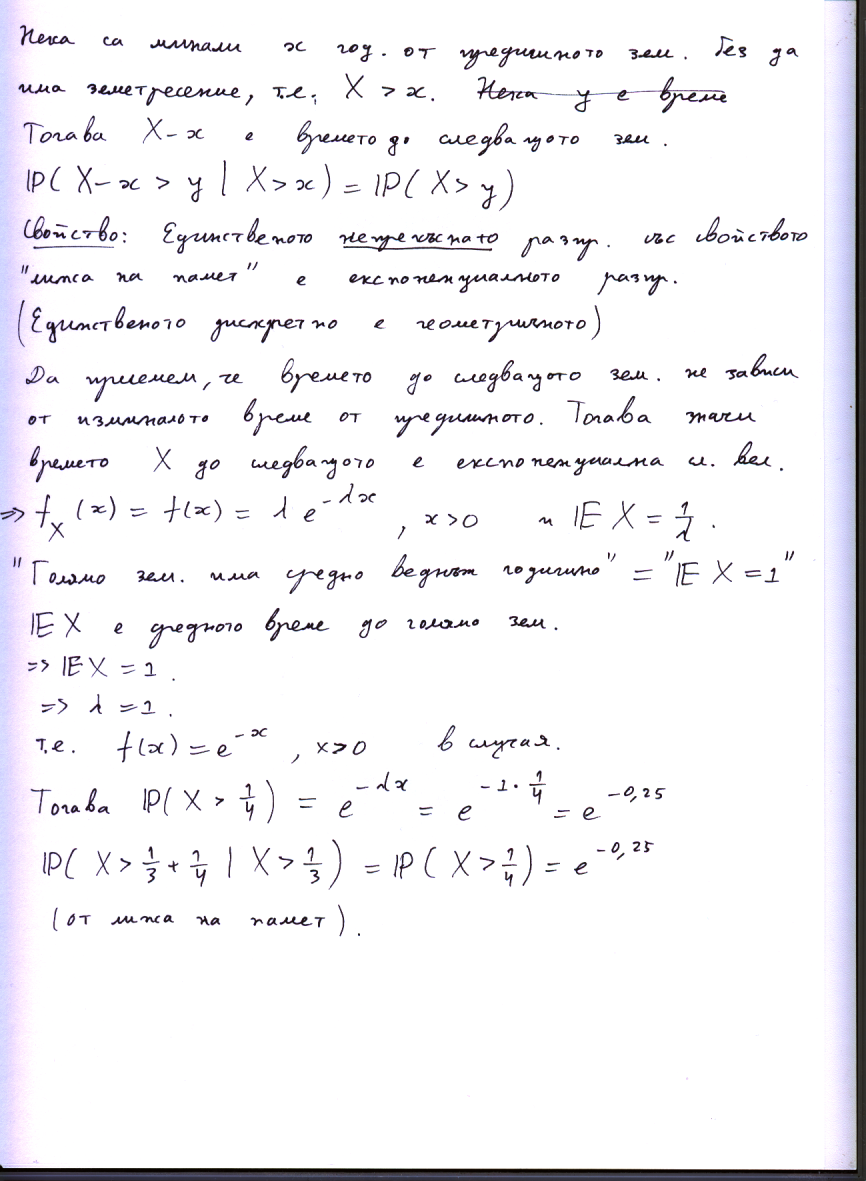 Нека са минали x год. от предишното зем. без да
има земетресение, т.е. X > x. Нека y е време
Тогава X-x е времето до следващото зем.
IP( X-x > y | X > x ) = IP( X > y )
Свойство: Единственото непрекъснато разпр. със свойството
"липса на памет" е експоненциалното разпр.
(Единственото дискретно е геометричното)
Да приемем, че времето до следващото зем. не зависи
от изминалото време от предишното. Тогава значи
времето X до следващото е експоненциална сл. вел.
=> f_X (x) = f(x) = λ e^{-λx} , x>0 и IE X = 1/λ .
"Голямо зем. има средно веднъж годишно" = "IE X = 1"
IE X е средното време до голямо зем.
=> IE X = 1 .
=> λ = 1 .
т.е. f(x) = e^{-x} , x>0 в случая.
Тогава IP( X > 1/4 ) = e^{-λx} = e^{-1·1/4} = e^{-0,25}
IP( X > 1/3 + 1/4 | X > 1/3 ) = IP ( X > 1/4 ) = e^{-0,25}
(от липса на памет) .